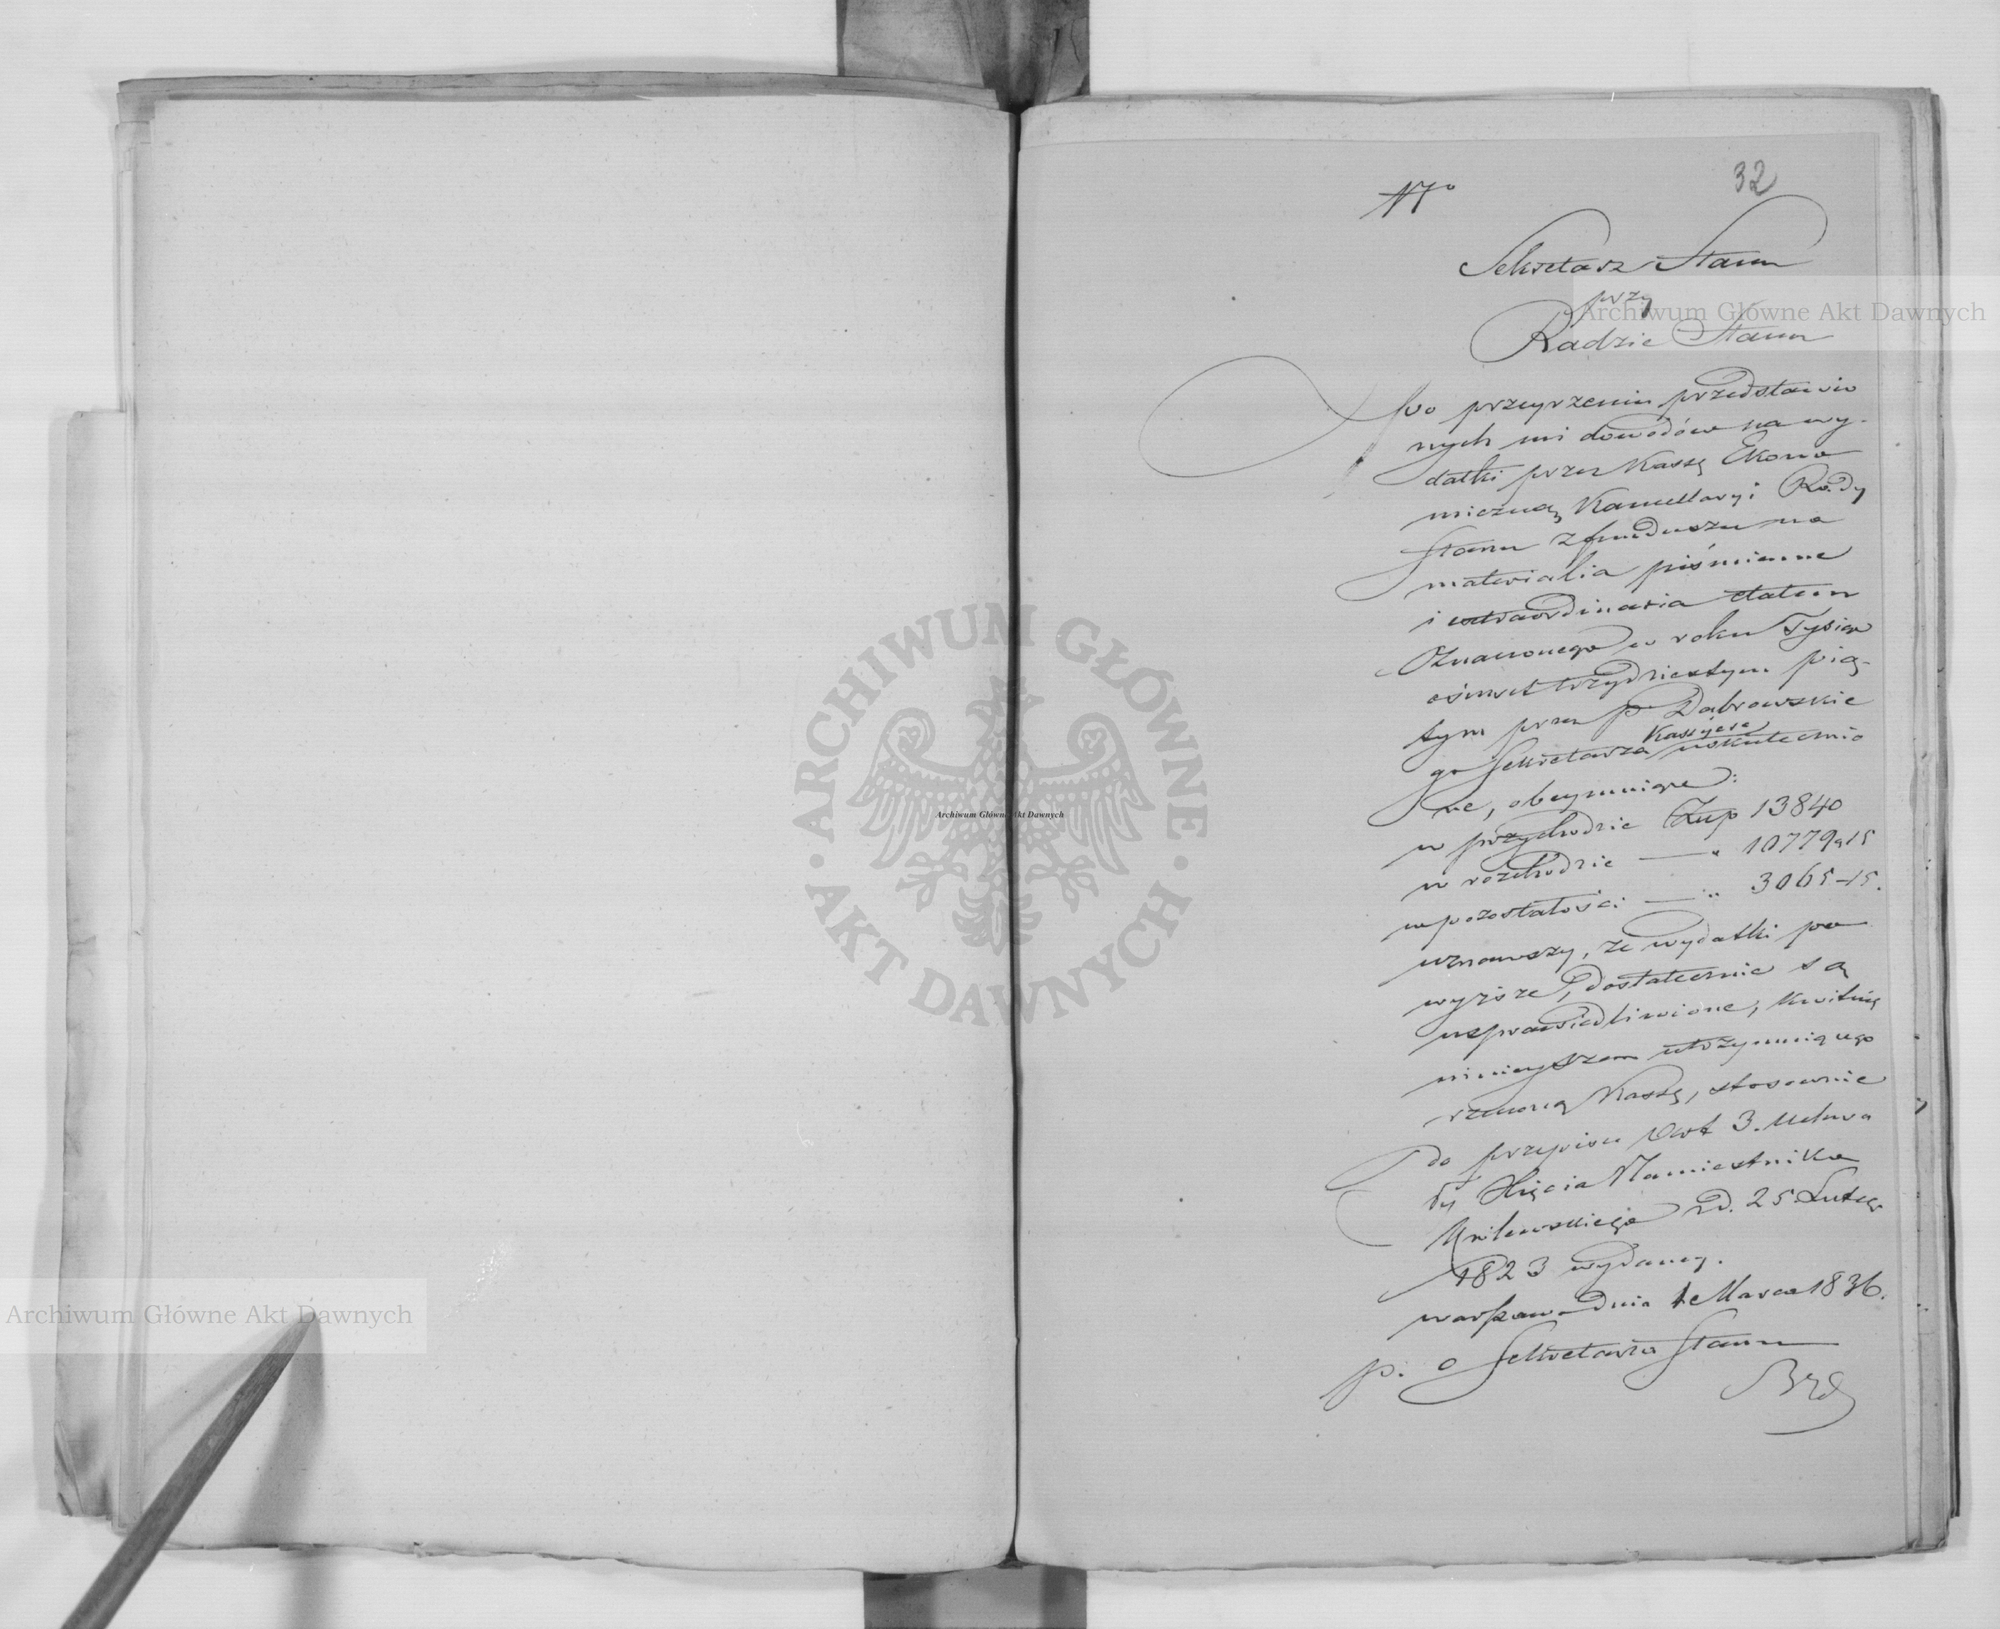 32
No
Sekretarz Stanu
przy
Radzie Stanu
Po przeyrzeniu przedstawio
nych mi dowodów na wy-
datki przez Kassę Ekono
miczną Kancellaryi Rady
Stanu z funduszu na
materialia piśmienne
i extraordinaria etatem
oznaczonego w roku Tysiąc
ośmset trzydziestym pią-
tym przez P Dąbrowskie
go Sekretarza Kassyera uskutecznio
ne, obeymuiące:
w przychodzie Złtp 13840
w rozchodzie — " 10779 " 15
w pozostałości — " 3065 - 15.
uznawszy, że wydatki po
wyższe, dostatecznie są
usprawiedliwione, kwituię
ninieyszem utrzymuiącego
rzeczoną Kassę, stosownie
do przepisu Art 3. Uchwa
ły Xięcia Namiestnika
Królewskiego d. 25 Lutego
1823 wydaney.
Warszawa dnia 1 Marca 1836.
p. o Sekretarza Stanu
Archiwum Główne Akt Dawnych
Archiwum Główne Akt Dawnych
Archiwum Główne Akt Dawnych
ARCHIWUM GŁÓWNE
AKT DAWNYCH